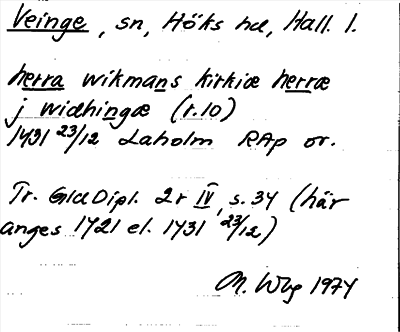 Veinge, sn, Höks hd, Hall. l.
herra wikmans kirkiæ herræ
j widhingæ (r.10)
1431 23/12 Laholm RAp or.
Tr. GldDipl. 2r IV, s. 34 (här
anges 1421 el. 1431 23/12)
M. Wbg 1974